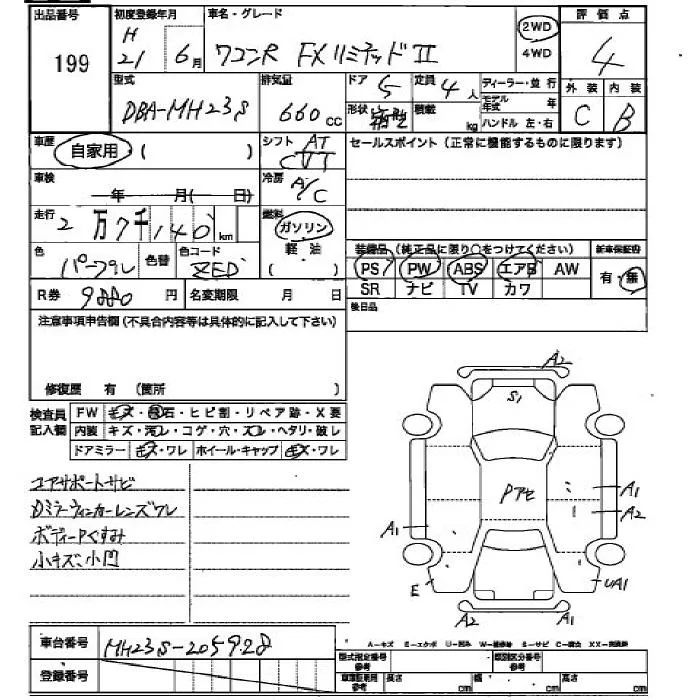 出品番号 初度登録年月 車名・グレード 評価点
199 H 21年 6月 ワゴンR FXリミテッドII 2WD 4WD 4
型式 排気量 ドア 5 定員 4人 ディーラー・並行 外装 内装
DBA-MH23S 660cc 形状 箱型 積載 kg モデル年式 年 ハンドル 左・右 C B
車歴 自家用 ( ) シフト AT CVT セールスポイント(正常に機能するものに限ります)
車検 年 月( 日) 冷房 A/C
走行 2万7千140km 燃料 ガソリン 軽油 ( )
色 パープル 色替 色コード ZED 装備品(純正品に限り○をつけてください) 新車保証書
PS PW ABS エアB AW 有・無
R券 9880円 名変期限 月 日 SR ナビ TV カワ
注意事項申告欄(不具合内容等は具体的に記入して下さい) 後日品
修復歴 有 (箇所 )
検査員記入欄 FW キズ・飛石・ヒビ割・リペア跡・X要
内装 キズ・汚レ・コゲ・穴・スレ・ヘタリ・破レ
ドアミラー キズ・ワレ ホイール・キャップ キズ・ワレ
コアサポートサビ
Dミラーウィンカーレンズワレ
ボディーPくすみ
小キズ、小凹
A2
S1
Pアセ
A1
A2
A1
E
UA1
A2
A1
車台番号 MH23S-205928
登録番号
A-キズ E-エクボ U-凹み W-補修跡 S-サビ C-腐食 XX-交換済
型式指定番号 参考 類別区分番号 参考
長さ cm 幅 cm 高さ cm